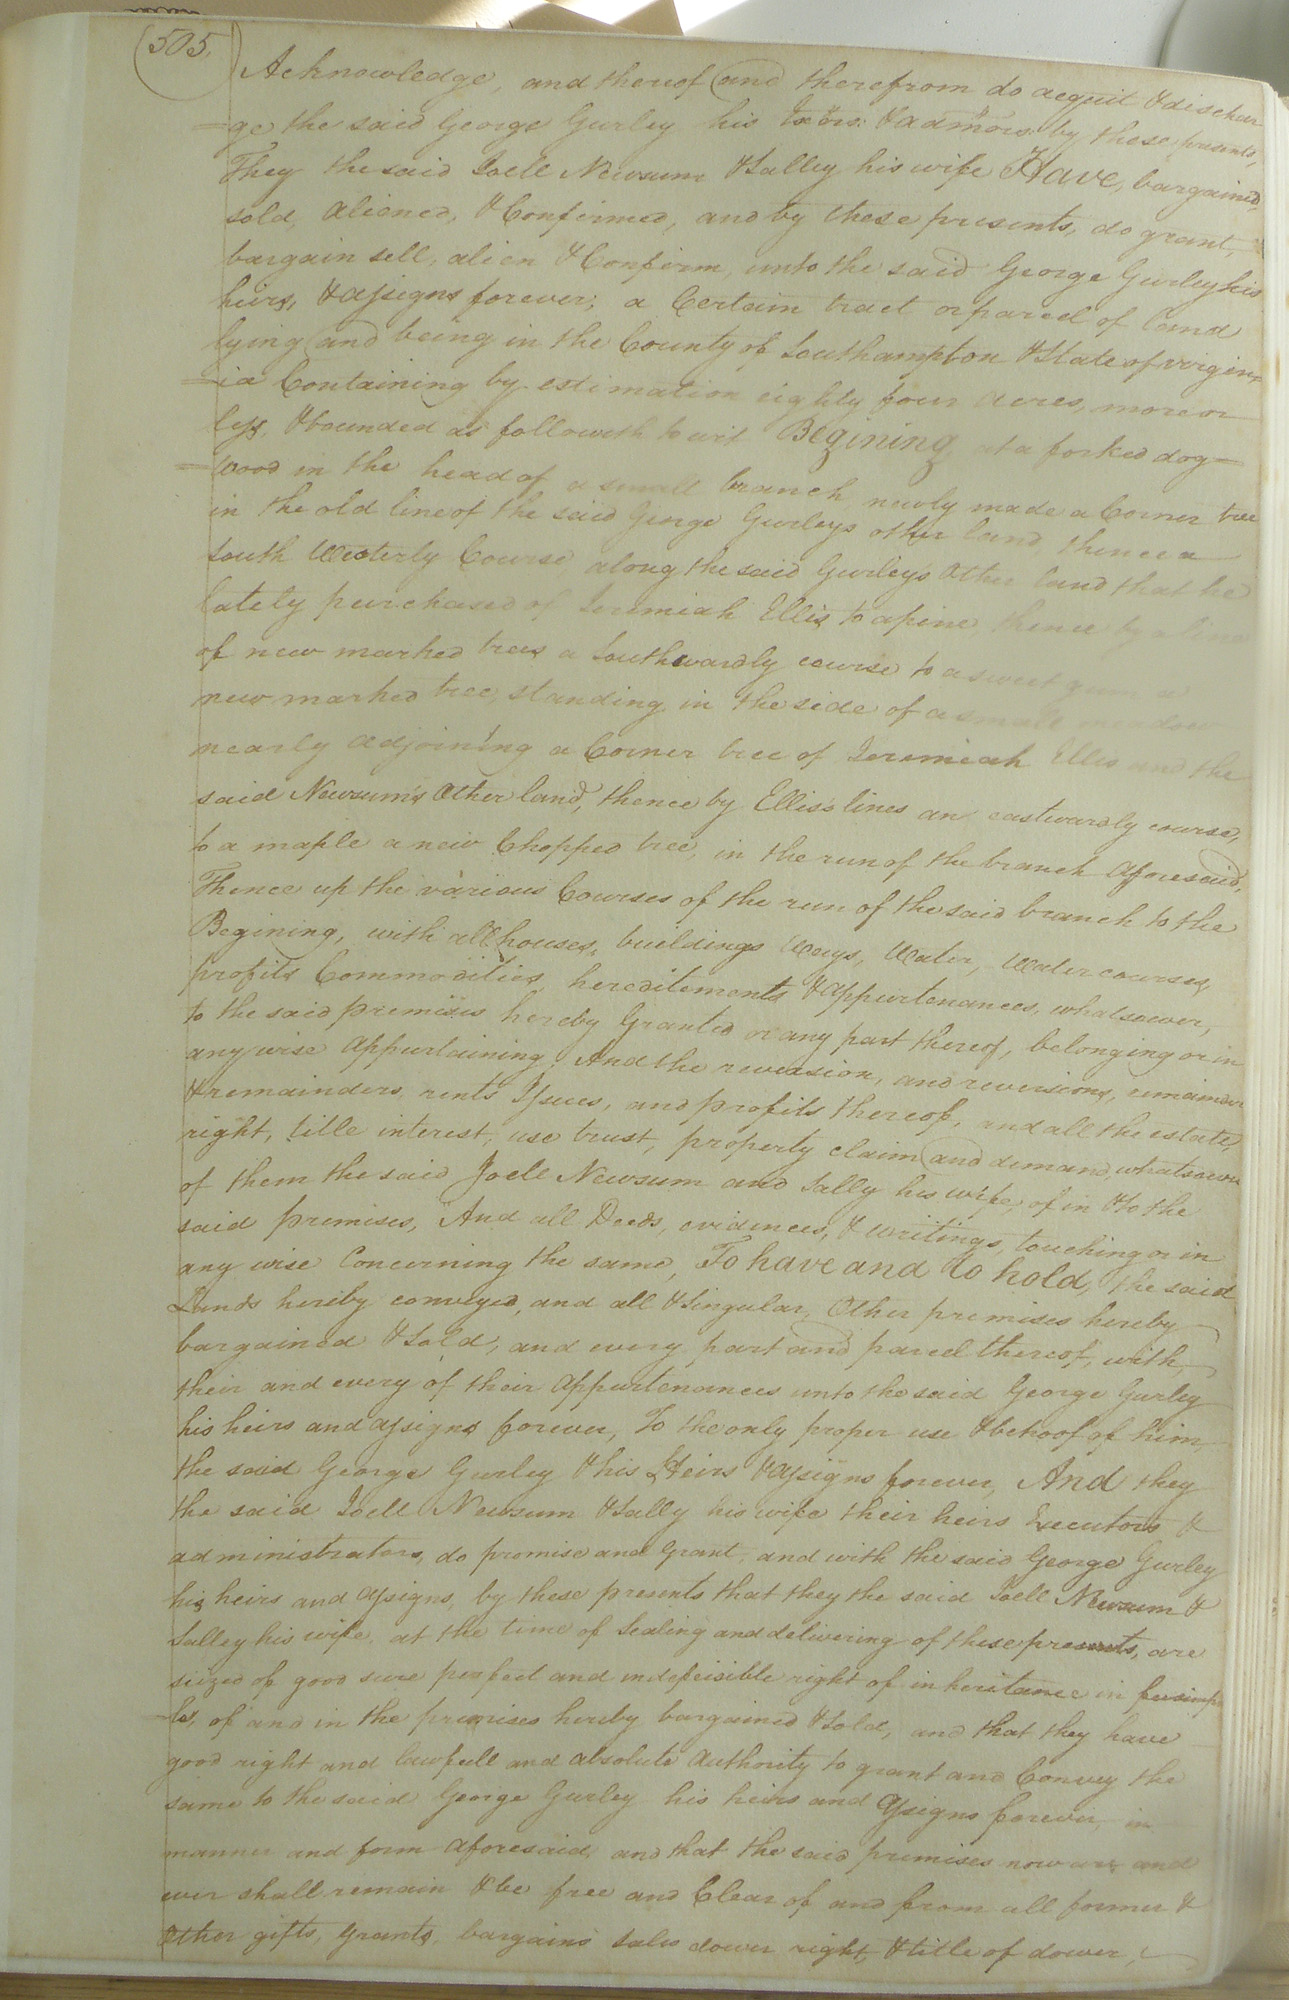 505.
Acknowledge, and thereof and therefrom do acquit & dischar
=ge the said George Gurley his Exors: & admors: by these presents,
They the said Joell Newsum & Salley his wife Have, bargained,
sold, aliened, & Confirmed, and by these presents, do grant,
bargain sell, alien & Confirm, unto the said George Gurley his
heirs, & assigns forever; a Certain tract or parcel of land
lying and being in the County of Southampton & State of virgin=
=ia Containing by estimation eighty four acres, more or
less, & bounded as followeth to wit Begining at a forked dog=
=wood in the head of a small branch newly made a Corner tree
in the old line of the said George Gurleys other land, thence a
South Westerly Course along the said Gurley's other land that he
lately purchased of Jeremiah Ellis to a pine thence by a line
of new marked trees a Southwardly course to a sweet gum a
new marked tree, standing in the side of a small meadow
nearly adjoining a Corner tree of Jeremiah Ellis and the
said Newsum's other land, thence by Ellis's lines an eastwardly course,
to a maple a new Chopped tree, in the run of the branch aforesaid,
Thence up the various Courses of the run of the said branch to the
Begining, with all houses, buildings Ways, Water, Water courses,
profits Commodities, hereditements & appurtenances, whatsoever,
to the said premises hereby Granted or any part thereof, belonging or in
any wise appurtaining, And the reversion, and reversions, remainder
& remainders, rents Issues, and profits thereof, and all the estate,
right, title interest, use trust, property claim and demand, whatsoever
of them the said Joell Newsum and Sally his wife, of in & to the
said premises, And all Deeds, evidences, & writings, touching or in
any wise Concerning the same, To have and to hold, the said
Lands hereby conveyed, and all & Singular, Other premises hereby
bargained & Sold, and every part and parcel thereof, with,
their and every of their appurtenances unto the said George Gurley
his heirs and assigns forever, To the only proper use & behoof of him,
the said George Gurley & his Heirs & assigns forever, And they
the said Joell Newsum & Sally his wife their heirs Executors &
administrators, do promise and Grant, and with the said George Gurley
his heirs and assigns, by these presents that they the said Joell Newsum &
Salley his wife, at the time of Sealing and delivering of these presents, are
siezed of good sure perfect and indefeisible right of inheritance in feesimp
=le, of and in the premises hereby bargained & Sold, and that they have
good right and lawfull and absolute authority to grant and Convey the
same to the said George Gurley his heirs and assigns forever, in
manner and form aforesaid, and that the said premises now are and
ever shall remain & be free and Clear of and from all former &
other gifts, grants, bargains Sales dower right, & title of dower,